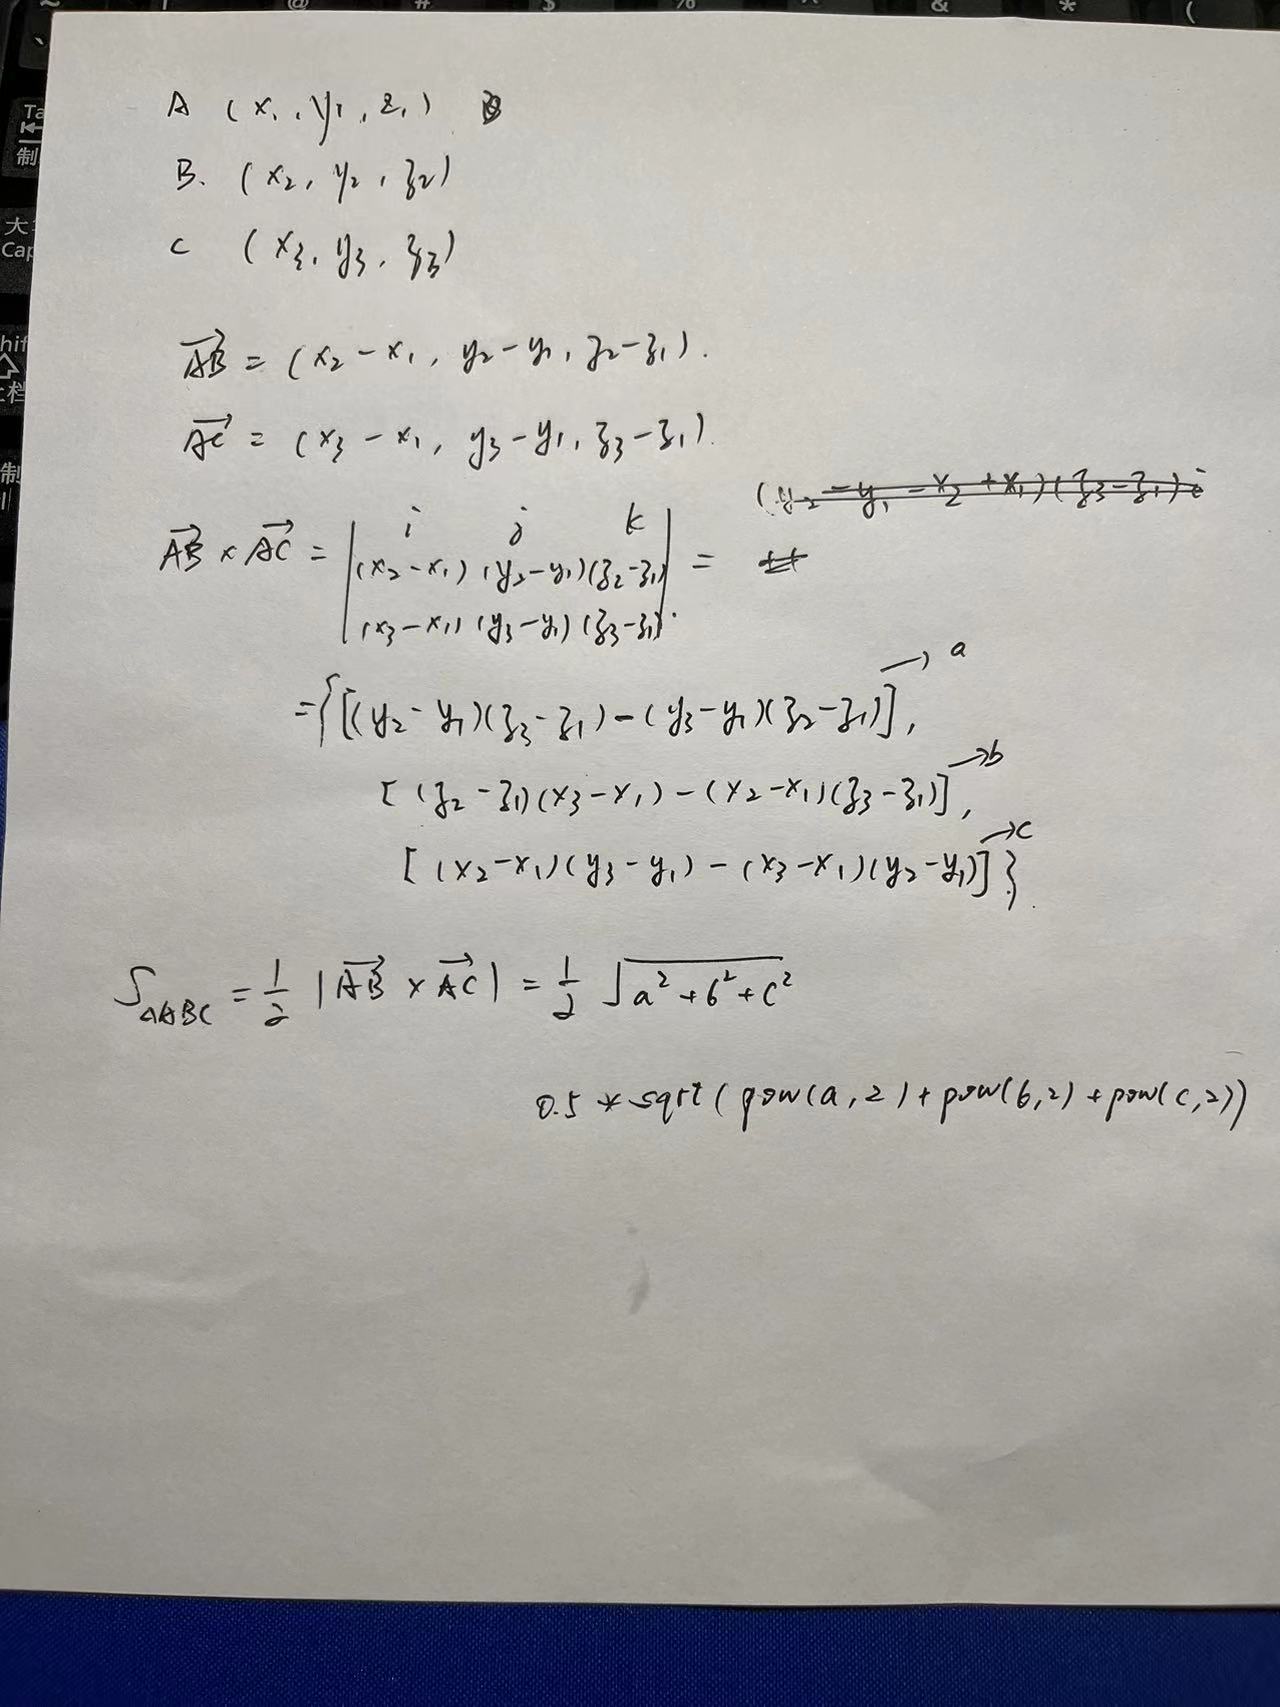 ~ @ # $ % ^ & * (
Ta
制
大
Cap
hif
上档
制
A (x₁, y₁, z₁)
B. (x₂, y₂, z₂)
C (x₃, y₃, z₃)
AB = (x₂-x₁, y₂-y₁, z₂-z₁).
AC = (x₃-x₁, y₃-y₁, z₃-z₁).
(y₂-y₁-x₂+x₁)(z₃-z₁)i
i j k
AB × AC = |(x₂-x₁) (y₂-y₁)(z₂-z₁)| =
(x₃-x₁) (y₃-y₁) (z₃-z₁).
={[(y₂-y₁)(z₃-z₁)-(y₃-y₁)(z₂-z₁)], → a
[(z₂-z₁)(x₃-x₁)-(x₂-x₁)(z₃-z₁)], → b
[(x₂-x₁)(y₃-y₁)-(x₃-x₁)(y₂-y₁)]}. → c
S△ABC = 1/2 |AB × AC| = 1/2 √(a²+b²+c²)
0.5 * sqrt(pow(a,2)+pow(b,2)+pow(c,2))